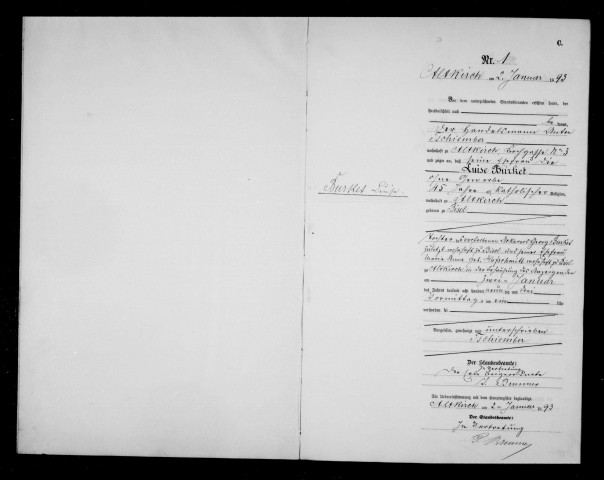 C.
Nr. 1
Altkirch am 2. Januar 1893
Vor dem unterzeichneten Standesbeamten erschien heute, der
Persönlichkeit nach
kannt,
der Handelsmann Anton
Tschiember
wohnhaft zu Altkirch, Hochgasse No 3
und zeigte an, daß seine Ehefrau die
Luise Burket
ohne Gewerbe
45 Jahre alt, katholischer Religion,
wohnhaft zu Altkirch
geboren zu Bisel
Burket Luise
Tochter des verstorbenen Georg Burket
zuletzt wohnhaft zu Bisel und seiner Ehefrau
Maria Anna geb. wohnhaft zu Bisel
zu Altkirch in der Behausung des Anzeigenden
am zwei Januar
des Jahres tausend acht hundert neunzig und drei
Vormittags um ein Uhr
verstorben sei
Vorgelesen, genehmigt und unterschrieben
Tschiember
Der Standesbeamte:
In Vertretung
Der erste Beigeordnete
Die Uebereinstimmung mit dem Hauptregister beglaubigt
Altkirch am 2. Januar 1893
Der Standesbeamte:
In Vertretung